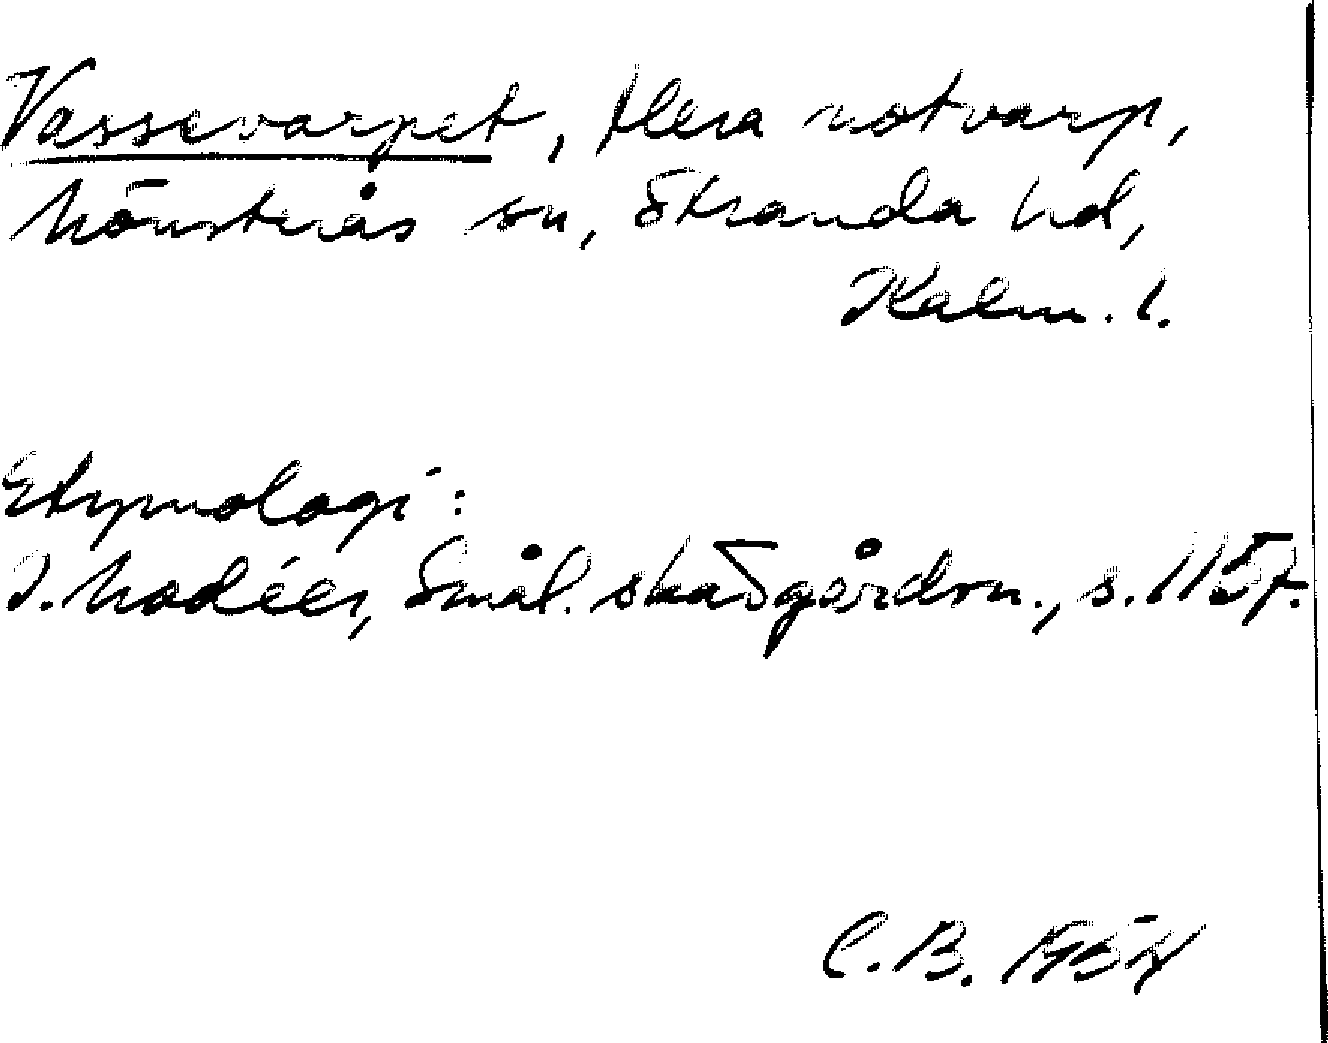 Vassevarpet, flera notvarp,
Mönsterås sn, Stranda hd,
Kalm. l.
Etymologi:
I. Modéer, Smål. skärgårdsn., s. 115 f.
C. B. 1954